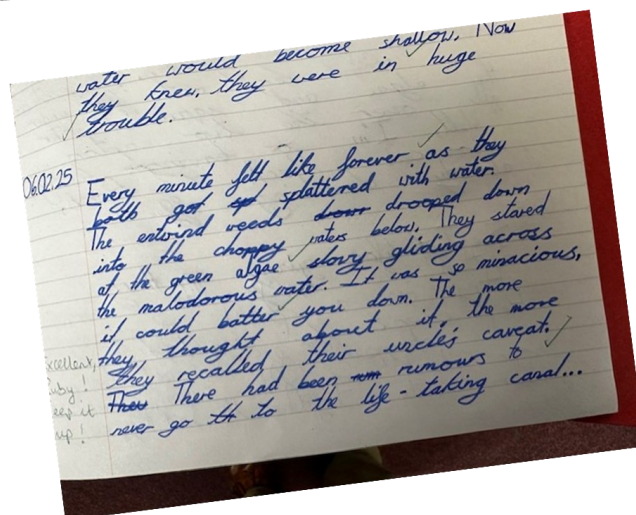 water would become shallow. Now
they knew, they were in huge
trouble.
06.02.25
Every minute felt like forever as they
both got splattered with water.
The entwind weeds down drooped down
into the choppy waters below. They stared
at the green algae slowy gliding across
the malodorous water. It was so minacious,
it could batter you down. The more
they thought about it, the more
they recalled their uncle's caveat.
They There had been rum rumours to
never go th to the life-taking canal...
Excellent,
Ruby!
Keep it
up!